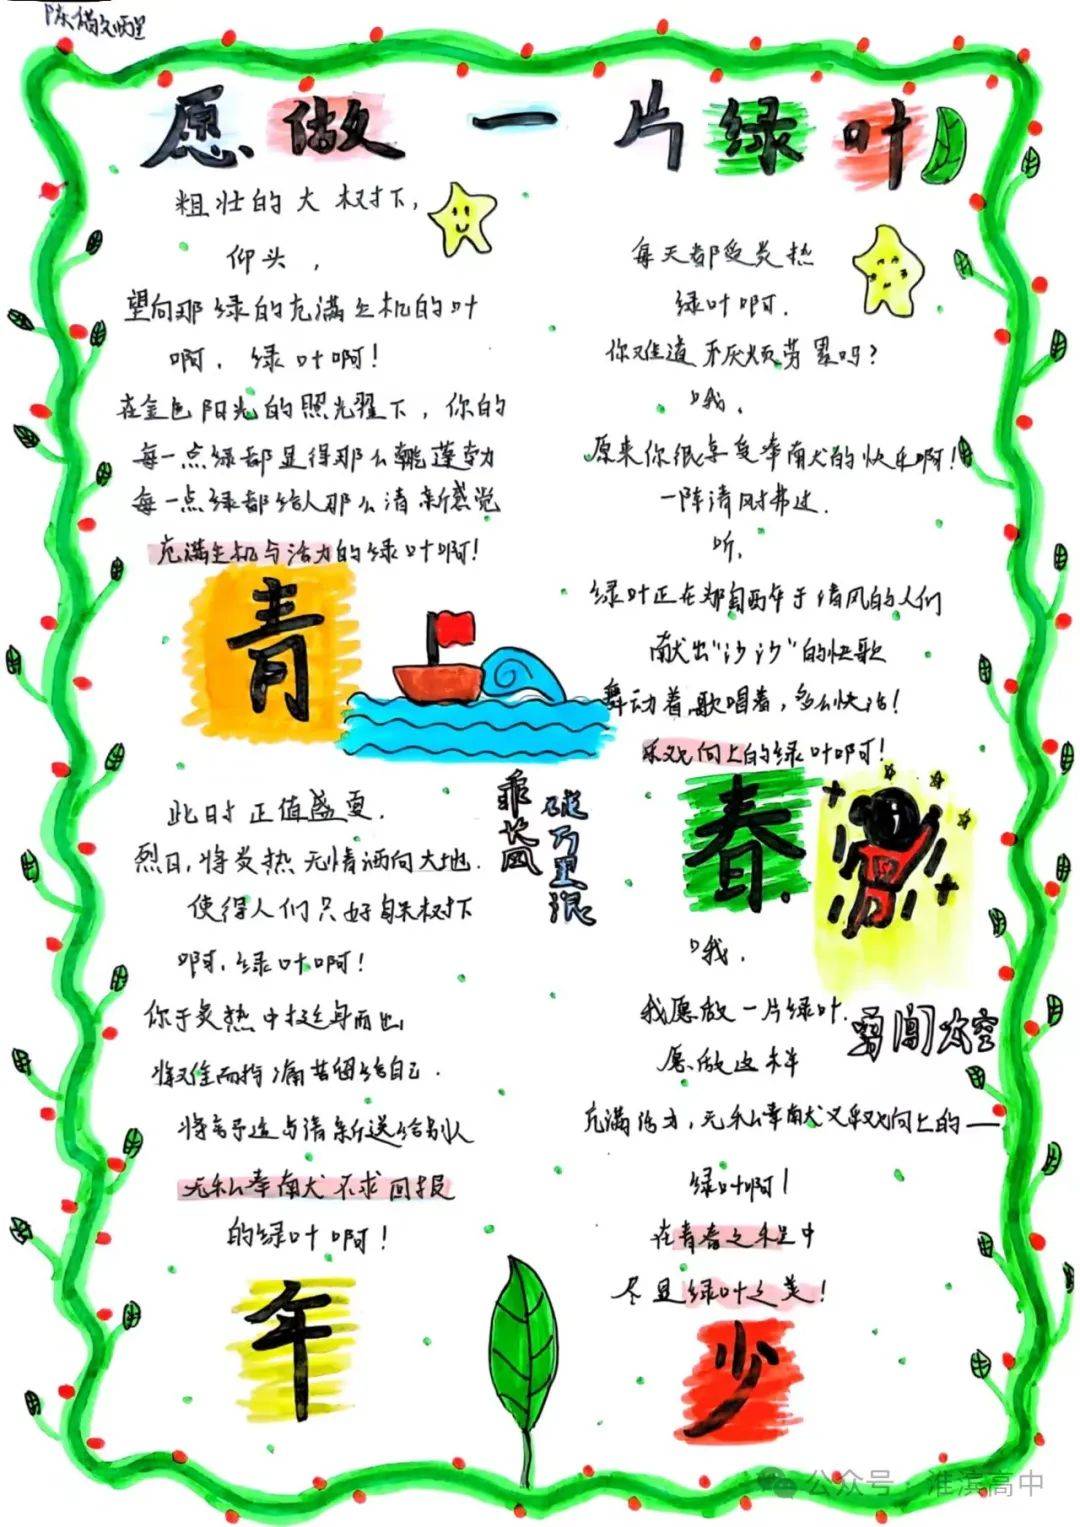 愿做一片绿叶
粗壮的大树下，
仰头，
望向那绿的充满生机的叶
啊，绿叶啊！
在金色阳光的照光耀下，你的
每一点绿都显得那么朝蓬勃
每一点绿都给人那么清新感觉
充满生机与活力的绿叶啊！
青
此时正值盛夏．
烈日，将炎热无情洒向大地．
使得人们只好躲树下
啊，绿叶啊！
你于炎热中挺身而出
将难而持痛苦留给自己．
将舒适与清新送给别人
无私奉献不求回报
的绿叶啊！
年
乘长风
破万里浪
每天都受炎热
绿叶啊．
你难道不厌烦劳累吗？
哦．
原来你很享受奉献的快乐啊！
一阵清风拂过．
听．
绿叶正在为自西于清风的人们
献出“沙沙”的快歌
舞动着，歌唱着，多么快活！
积极向上的绿叶啊！
春
哦．
我愿做一片绿叶．
愿做这样
充满活力，无私奉献又积极向上的——
绿叶啊！
在青春之程中
尽显绿叶之美！
勇闯太空
少
公众号：淮滨高中